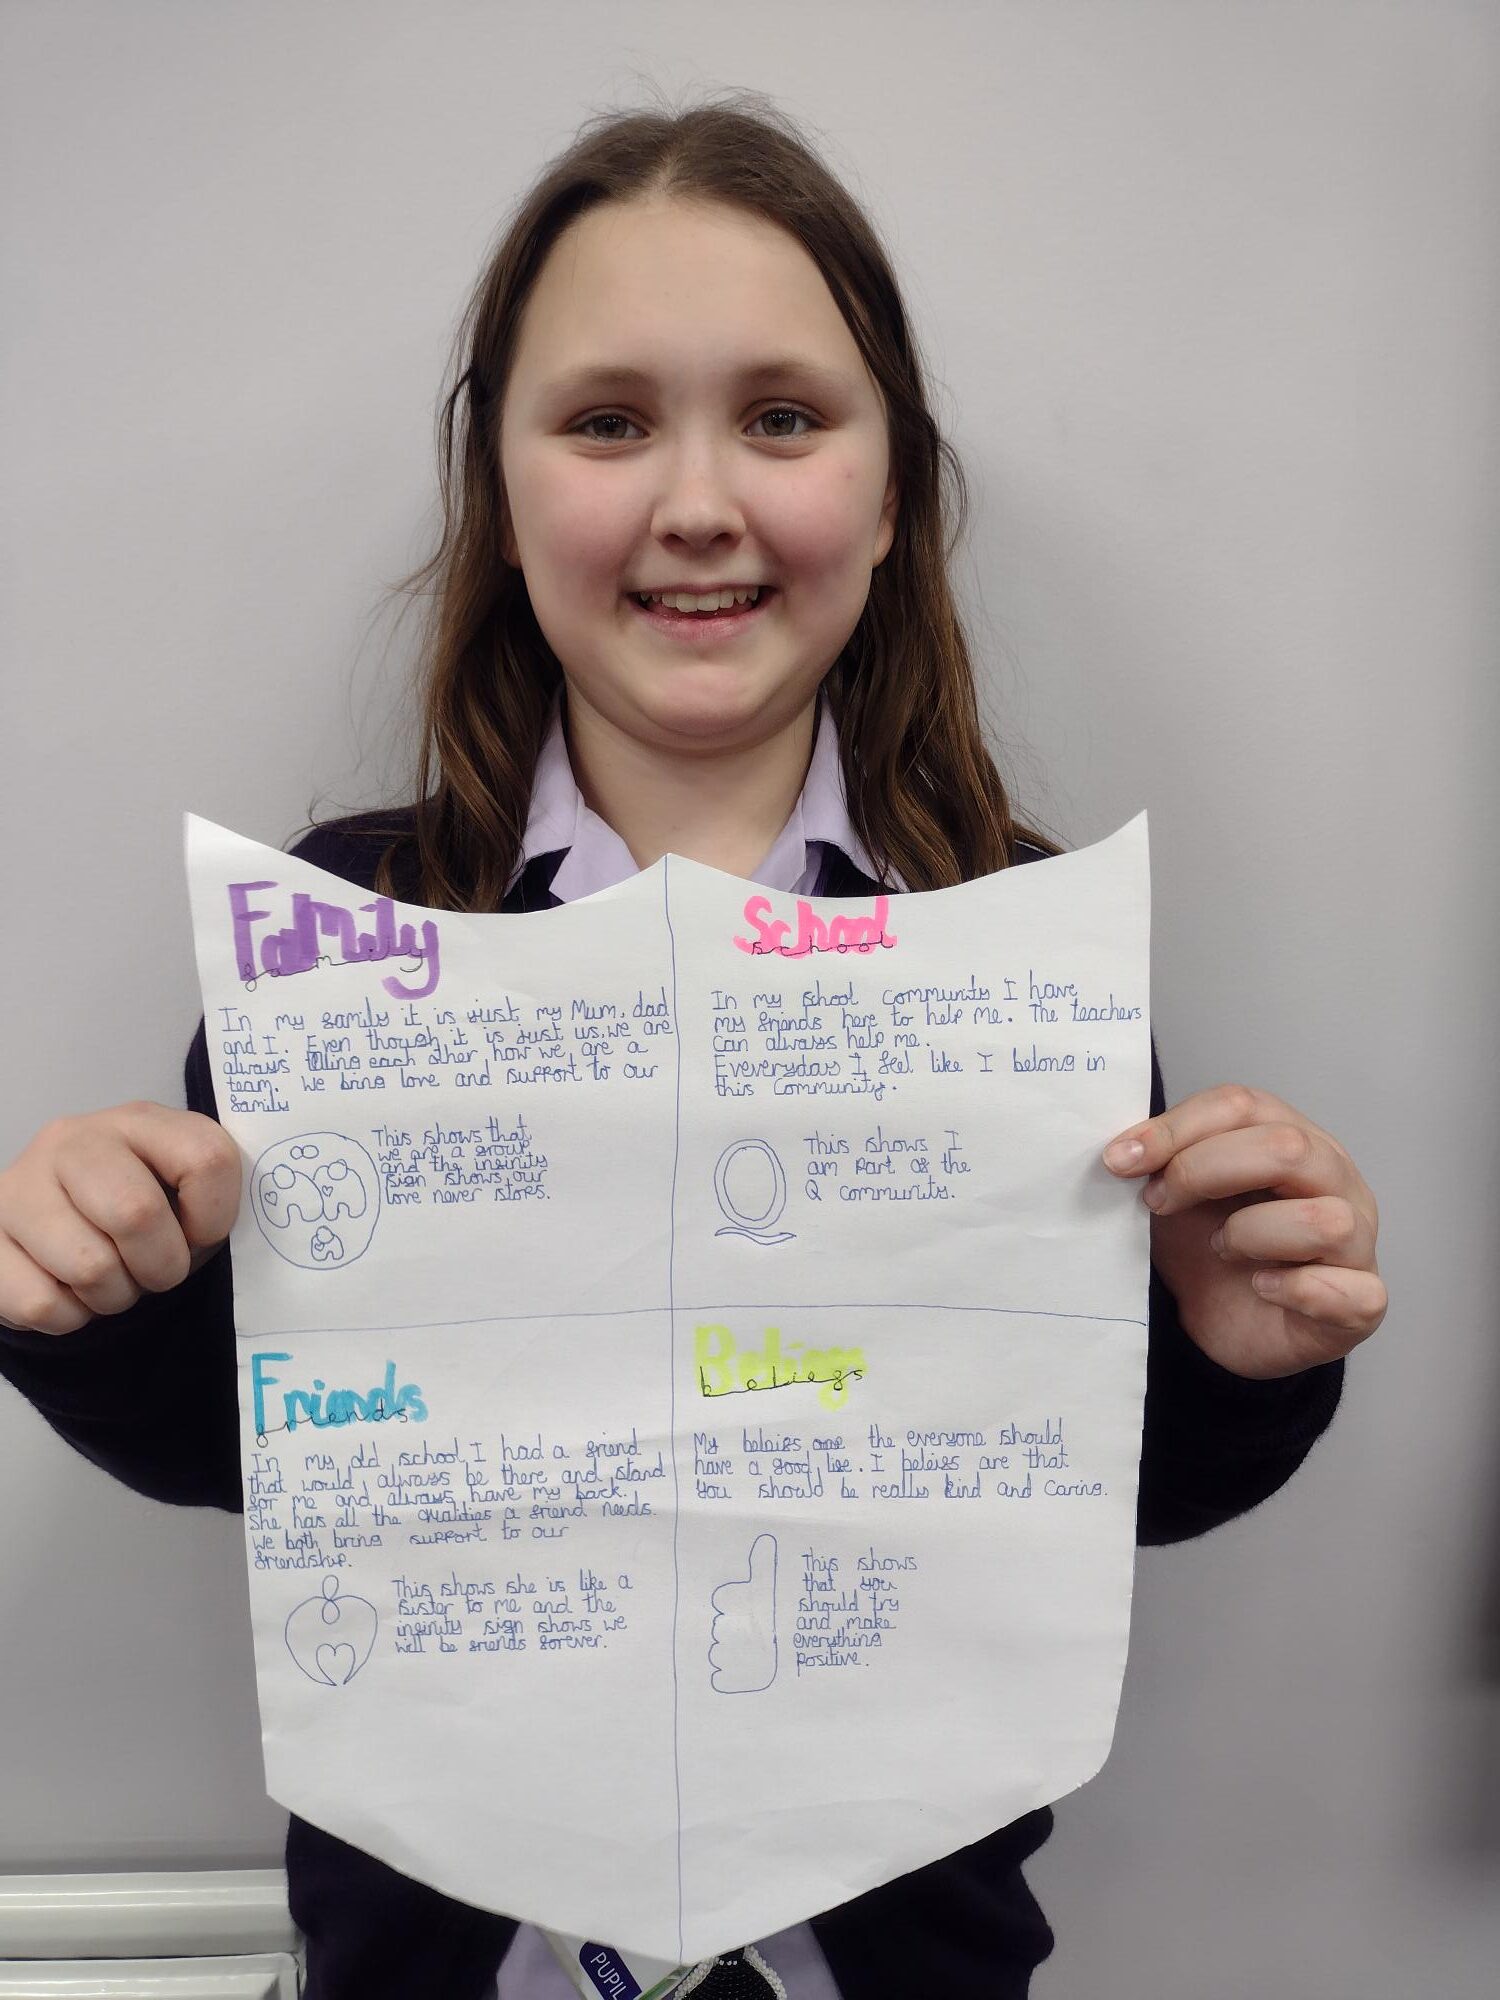 Family
family
In my family it is just my Mum, dad
and I. Even though it is just us, we are
always telling each other how we are a
team. We bring love and support to our
family
This shows that
we are a group
and the infinity
sign shows our
love never stops.
School
school
In my school community I have
my friends here to help me. The teachers
can always help me.
Eveveryday I feel like I belong in
this community.
This shows I
am part of the
Q community.
Friends
friends
In my old school I had a friend
that would always be there and stand
for me and always have my back.
She has all the qualities a friend needs.
We both bring support to our
friendship.
This shows she is like a
sister to me and the
infinity sign shows we
will be friends forever.
Beliefs
beliefs
My beleifs are the everyone should
have a good life. I beleifs are that
you should be really kind and caring.
This shows
that you
should try
and make
everything
positive.
PUPIL